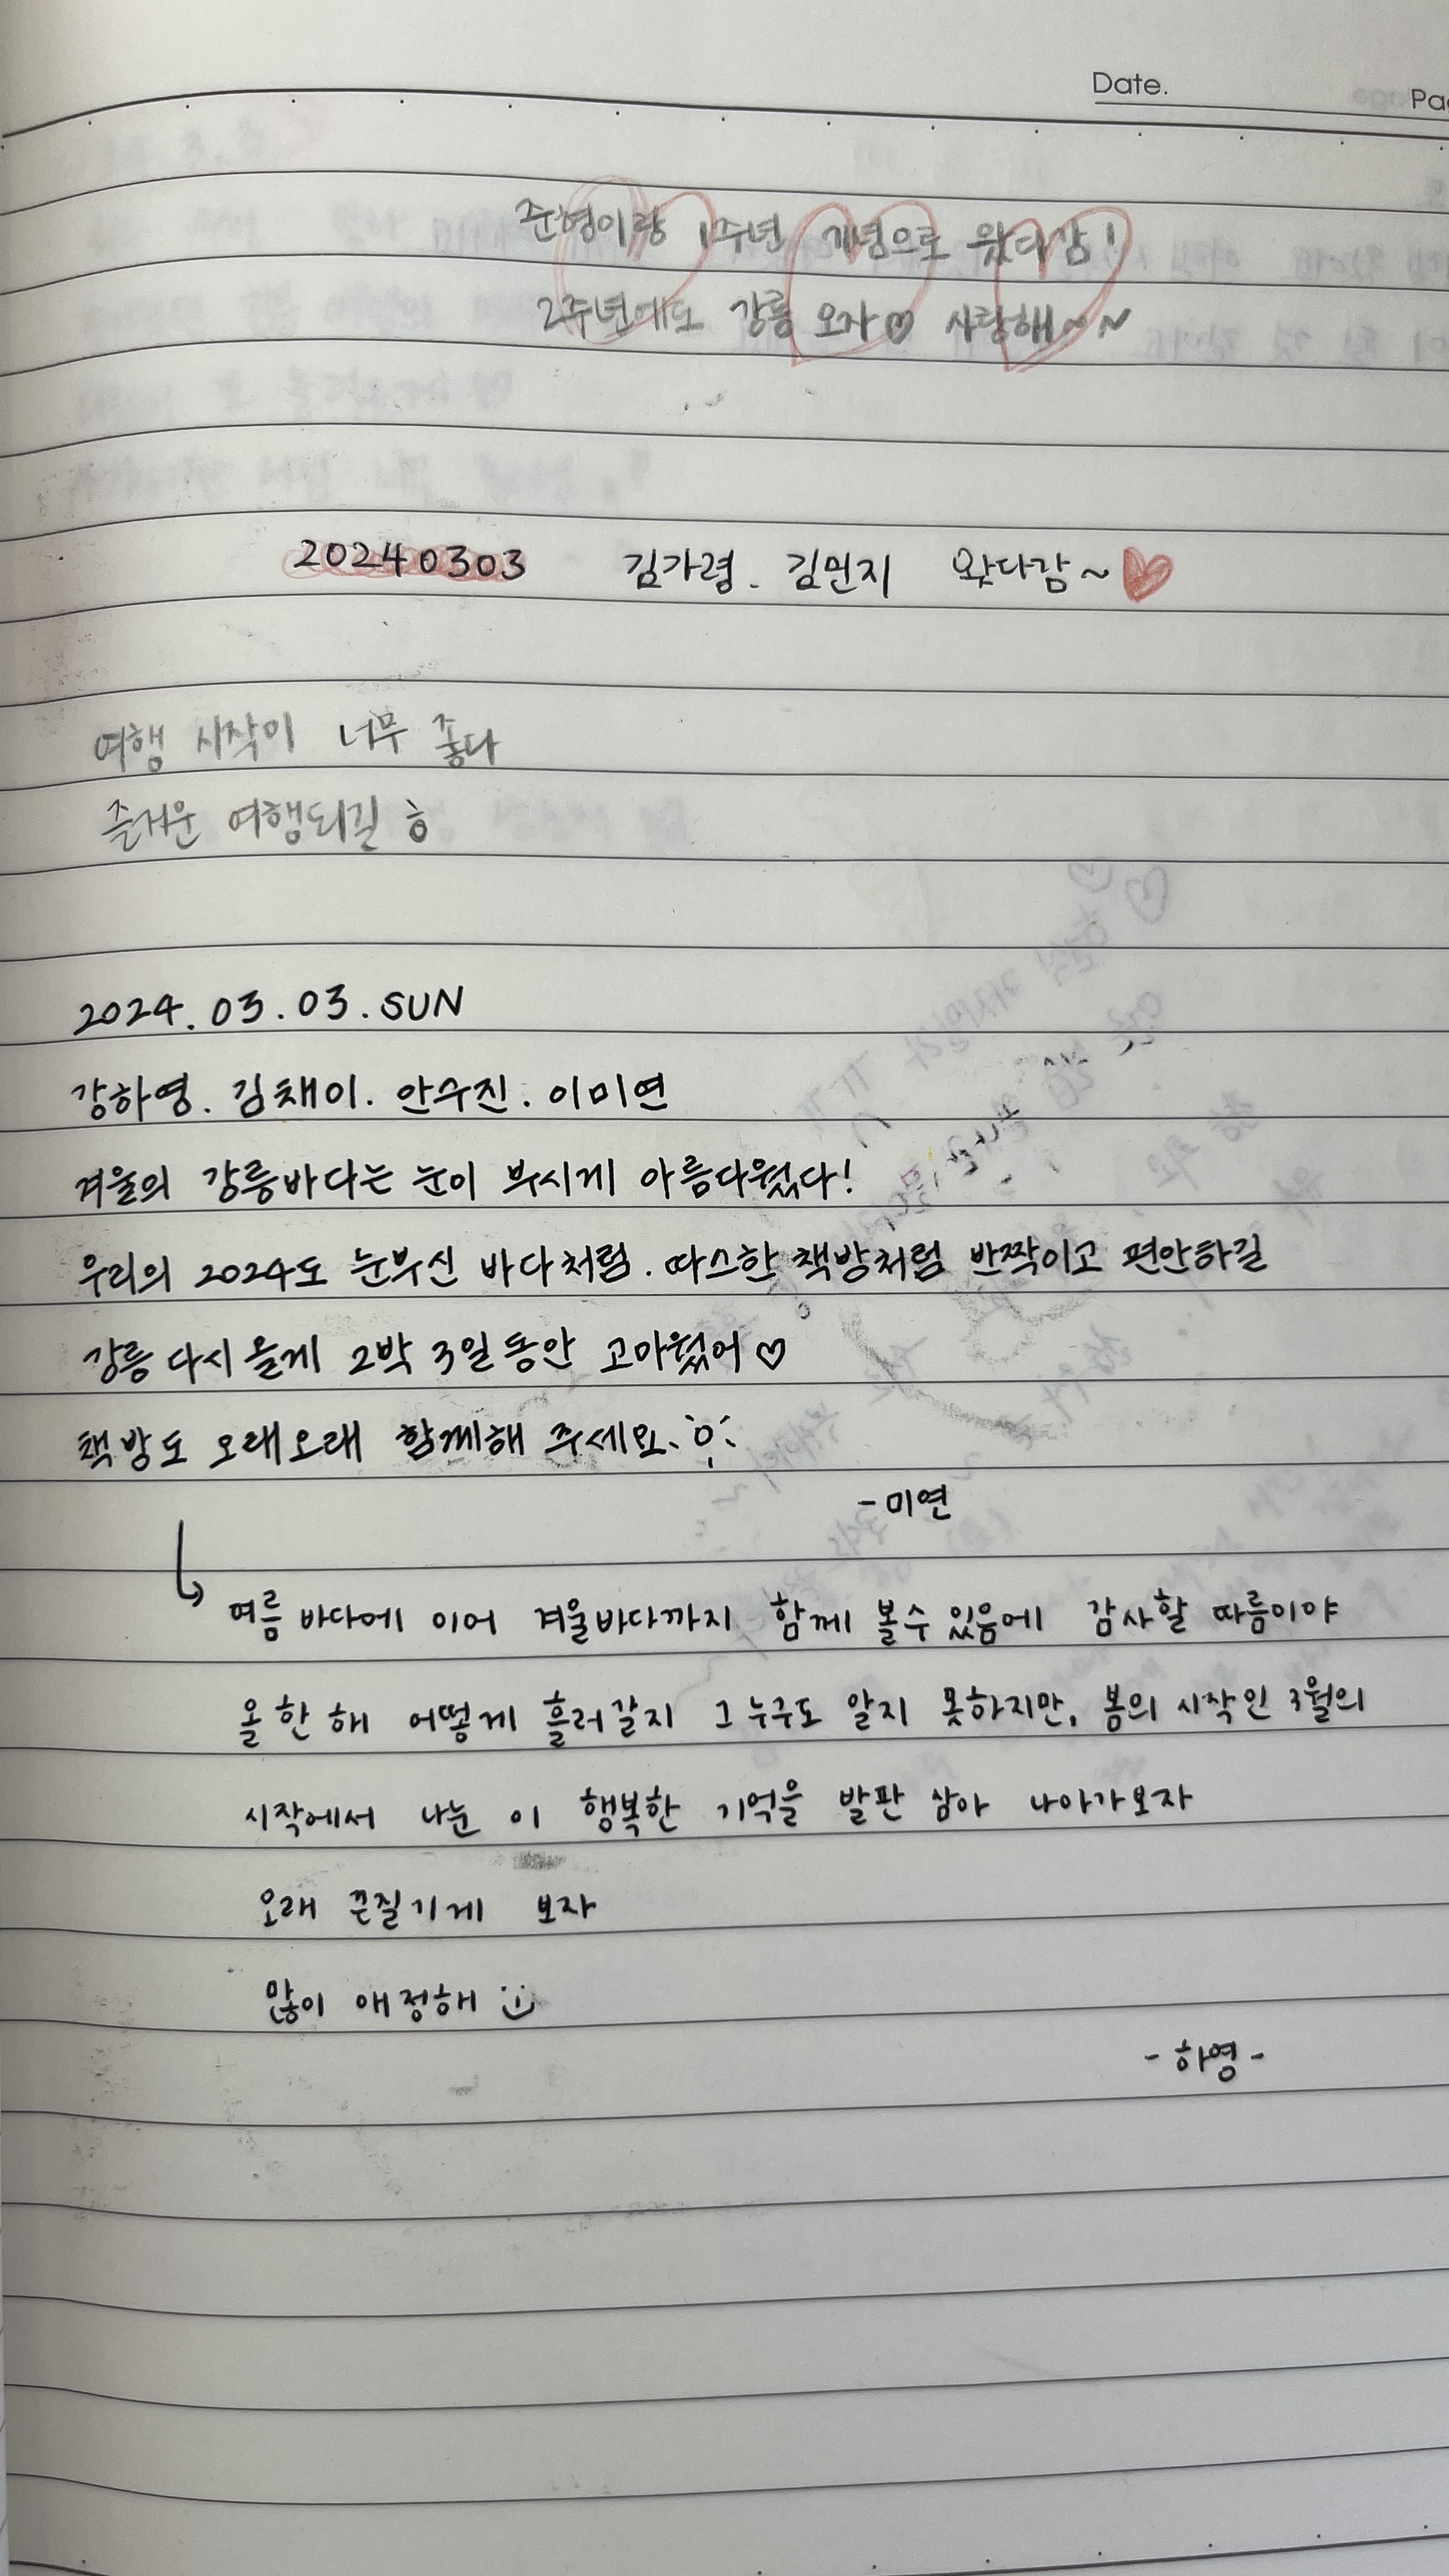 Date.
준형이랑 1주년 개념으로 왔다감!
2주년에도 강릉 오자♡ 사랑해~~
20240303 김가령. 김민지 왔다감~♥
여행 시작이 너무 좋다
즐거운 여행되길 ㅎ
2024.03.03.SUN
강하영. 김채이. 안수진. 이미연
겨울의 강릉바다는 눈이 부시게 아름다웠다!
우리의 2024도 눈부신 바다처럼. 따스한 책방처럼 반짝이고 편안하길
강릉 다시 올게 2박 3일 동안 고마웠어♡
책방도 오래오래 함께해 주세요.
-미연
여름 바다에 이어 겨울바다까지 함께 볼수 있음에 감사할 따름이야
올 한 해 어떻게 흘러갈지 그 누구도 알지 못하지만, 봄의 시작인 3월의
시작에서 나눈 이 행복한 기억을 발판 삼아 나아가보자
오래 끈질기게 보자
많이 애정해
-하영-